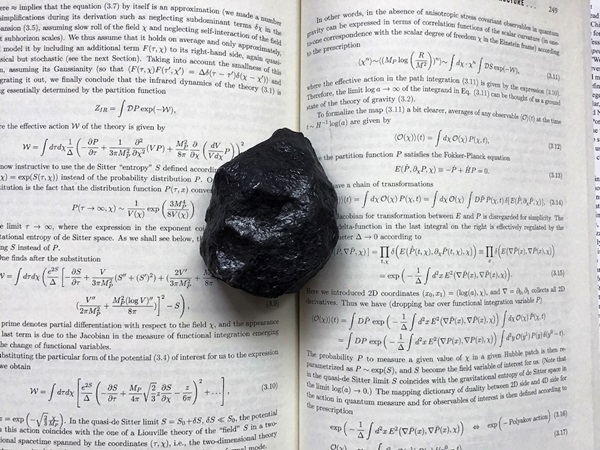 ere ≈ implies that the equation (3.7) by itself is an approximation (we made a number
simplifications during its derivation such as neglecting subdominant terms
ansion (3.5), assuming slow roll of the field χ and neglecting self-interaction of the field
t subhorizon scales). We thus assume that it holds on average and only approximately,
model it by including an additional term F(τ, χ) to its right-hand side, again quasi-
sical but stochastic (see the next Section). Taking into account the smallness of this
n, assuming its Gaussianity (so that ⟨F(τ, χ)F(τ′, χ′)⟩ = Δδ(τ − τ′)δ(χ − χ′)) and
grating it out, we finally conclude that the infrared dynamics of the theory (3.1) is
g essentially determined by the partition function
Z_IR = ∫ DP exp(−W),
re the effective action W of the theory is given by
W = ∫ dτdχ 1/Δ (−∂P/∂τ + 1/3πM_P^2 ∂²/∂χ² (VP) + M_P^2/8π ∂/∂χ (dV/Vdχ P))²
now instructive to use the de Sitter "entropy" S defined
χ) = exp(S(τ, χ)) instead of the probability distribution P.
stitution is the fact that the distribution function P(τ, χ)
P(τ → ∞, χ) ∼ 1/V(χ) exp(3M_P^4/8V(χ))
e limit τ → ∞, where the expression in the exponent
itational entropy of de Sitter space. As we shall see below,
ng S instead of P.
One finds after the substitution
V = ∫ dτdχ (e^{2S}/Δ [−∂S/∂τ + V/3πM_P^2 (S″ + (S′)²) + (2V′/3πM_P^2
(V″/2πM_P^2 + M_P^2(log V)″/8π)]² − S),
prime denotes partial differentiation with respect to the field χ, and the appearance
last term is due to the Jacobian in the measure of functional integration emerging
the change of functional variables.
ubstituting the particular form of the potential (3.4) of interest for us to the expression
we obtain
W = ∫ dτdχ [e^{2S}/Δ (−∂S/∂τ + M_P/4π √(2/3) ∂S/∂χ − z/6π)² + ...], (3.10)
In the quasi-de Sitter limit S = S₀ + δS, δS ≪ S₀, the potential
this action coincides with the one of a Liouville theory of the "field" S in a two-
ensional spacetime spanned by the coordinates (τ, χ), i.e., the two-dimensional theory
249
In other words, in the absence of anisotropic stress covariant observables in quantum
gravity can be expressed in terms of correlation functions of the scalar curvature (in one-
to-one correspondence with the scalar degree of freedom χ in the Einstein frame) according
to the prescription
⟨χⁿ⟩ ∼ ⟨(M_P log(R/M²))ⁿ⟩ ∼ ∫ dχ · χⁿ ∫ DS exp(−W), (3.11)
where the effective action in the path integration (3.11) is given by the expression (3.10).
Therefore, the limit log a → ∞ of the integrand in Eq. (3.11) can be thought of as a ground
state of the theory of gravity (3.2).
To formalize the map (3.11) a bit clearer, averages of any observable ⟨O⟩(t) at the time
t ∼ H⁻¹ log(a) are given by
⟨O(χ)⟩(t) = ∫ dχ O(χ) P(χ, t), (3.12)
the partition function P satisfies the Fokker-Planck equation
E(Ṗ, ∂_χP, χ) ≡ −Ṗ + ĤP = 0. (3.13)
have a chain of transformations
⟩(t) = ∫ dχ O(χ) P(χ, t) = ∫ dχ O(χ) ∫ DP̃ P̃(χ, t) δ[E(Ṗ̃, ∂_χP̃, χ)], (3.14)
Jacobian for transformation between E and P is disregarded for simplicity. The
delta-function in the last integral on the right is effectively regularized by the
meter Δ → 0 according to
= exp(−1/Δ ∫ d²x E²(∇P̃(x), ∇P̃(x), x)) (3.15)
Here we introduced 2D coordinates (x₀, x₁) = (log(a), χ), and ∇ = ∂₀, ∂₁ collects all 2D
derivatives. Thus we have (dropping bar over functional integration variable P)
⟨O(χ)⟩(t) = ∫ DP exp(−1/Δ ∫ d²x E²(∇P(x), ∇P(x), x)) ∫ dχ O(χ)P(χ, t)
The probability P to measure a given value of χ in a given Hubble patch is then re-
parametrized as P ∼ exp(S), and S become the field variable of interest for us. (Note that
in the quasi-de Sitter limit S coincides with the gravitational entropy of de Sitter space in
the limit log(a) → 0.) The mapping dictionary of duality between 2D side and 4D side for
the action in quantum measure and for observables of interest is then defined according to
the prescription
exp(−1/Δ ∫ d²x E²(∇P(x), ∇P(x), x)) ⇔ exp(−Polyakov action) (3.16)
(3.17)